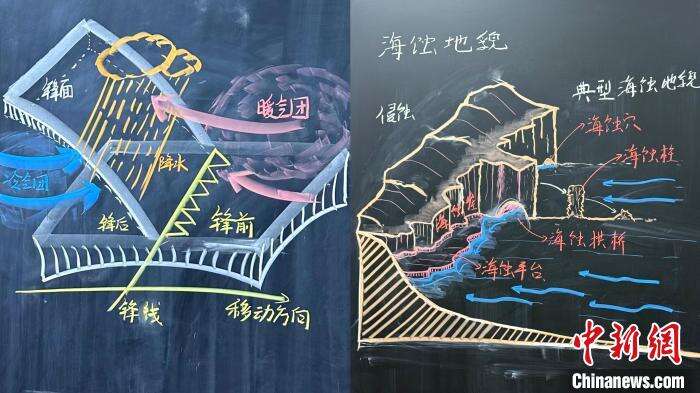 锋面
暖气团
冷气团
降水
锋后
锋前
锋线
移动方向
海蚀地貌
侵蚀
典型海蚀地貌
海蚀穴
海蚀柱
海蚀崖
海蚀拱桥
海蚀平台
中新網
Chinanews.com